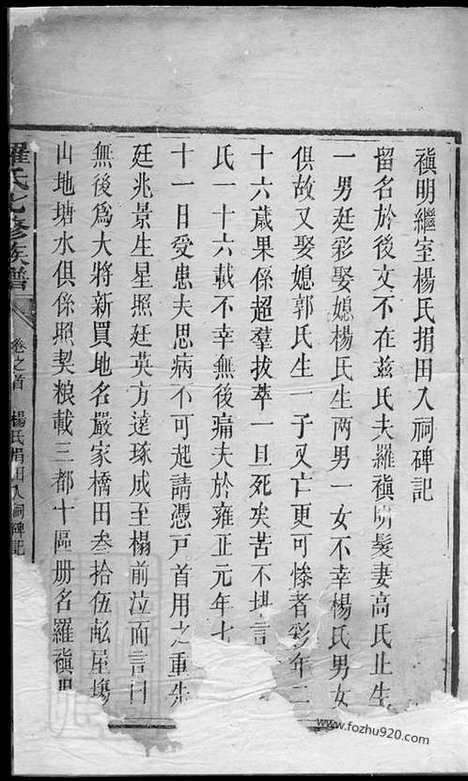 禛明繼室楊氏捐田入祠碑記
留名於後文不在茲氏夫羅禛明髮妻高氏止生
一男廷彩娶媳楊氏生兩男一女不幸楊氏男女
俱故又娶媳郭氏生一子又亡更可慘者彩年二
十六歲果係超羣拔萃一旦死矣苦不堪言
氏一十六載不幸無後痛夫於雍正元年七
十一日受患夫思病不可起請憑戸首用之重先
廷兆景生星照廷英方達琢成至榻前泣面言曰
無後爲大將新買地名嚴家橋田叁拾伍畝屋塲
山地塘水俱係照契粮載三都十區册名羅禛明
羅氏七修族譜
卷之首
楊氏捐田入祠碑記
www.fozhu920.com